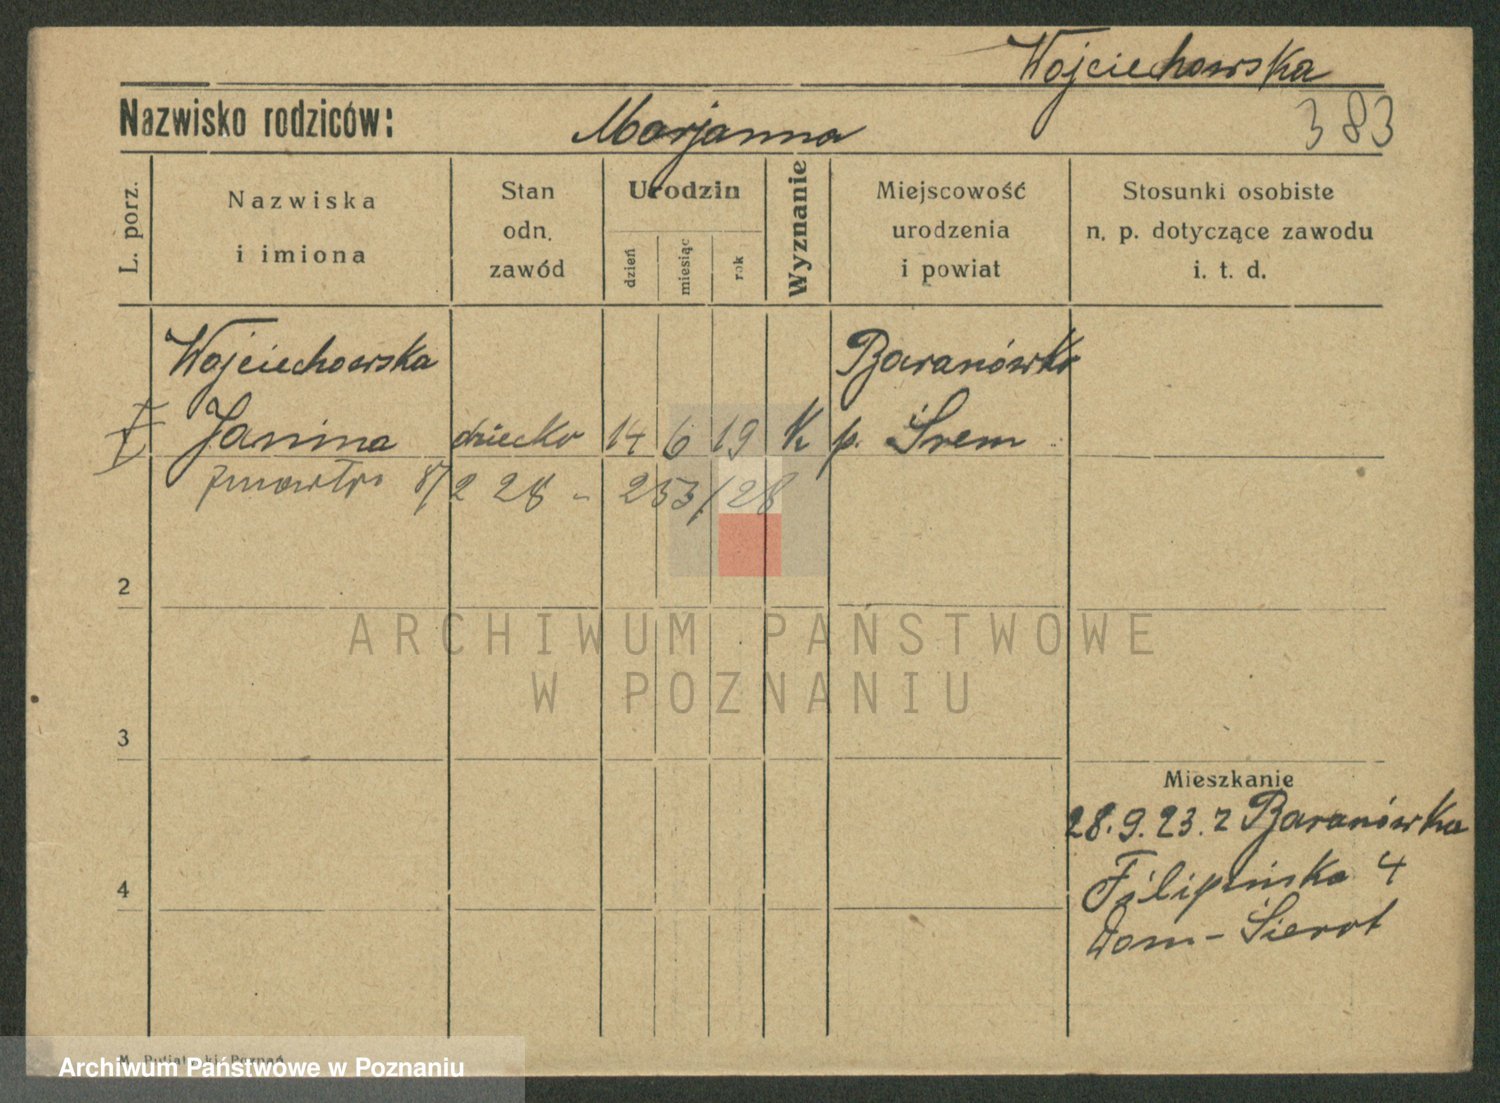 Wojciechowska
Nazwisko rodziców: Marjanna 383
L. porz.
Nazwiska
i imiona
Stan
odn.
zawód
Urodzin
dzień
miesiąc
rok
Wyznanie
Miejscowość
urodzenia
i powiat
Stosunki osobiste
n. p. dotyczące zawodu
i. t. d.
Wojciechowska Baranówko
Janina dziecko 14 6 19 K p. Śrem
zmarła 8/2 28 - 253/28
2
ARCHIWUM PAŃSTWOWE
W POZNANIU
3
Mieszkanie
28.9.23. z Baranówka
4
Filipińska 4
Dom - Sierot
Archiwum Państwowe w Poznaniu